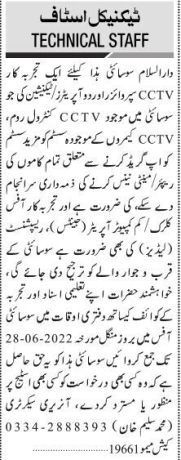 ٹیکنیکل اسٹاف
TECHNICAL STAFF
دارالسلام سوسائٹی ہذا کیلئے ایک تجربہ کار
CCTV سپروائزر اور دو آپریٹرز/ٹیکنیشن کی جو
سوسائٹی میں موجود CCTV کنٹرول روم،
CCTV کیمروں کے موجودہ سسٹم کو مزید سسٹم
کو اپ گریڈ کرنے سے متعلق تمام کاموں کی
ریپئر/مینٹی نینس کرنے کی ذمہ داری سرانجام
دے سکے، کی ضرورت ہے اور تجربہ کار آفس
کلرک/کم کمپیوٹر آپریٹر (جینٹس)، ریسپشنسٹ
(لیڈیز) کی بھی ضرورت ہے سوسائٹی کے
قرب و جوار والے کو ترجیح دی جائے گی،
خواہشمند حضرات اپنے تعلیمی اسناد اور تجربہ
کے کوائف کیساتھ دفتری اوقات میں سوسائٹی
آفس میں بروز منگل مورخہ 28-06-2022
تک جمع کروائیں سوسائٹی ہذا کو یہ حق حاصل
ہے کہ وہ کسی بھی درخواست کو کسی بھی اسٹیج پر
منظور یا مسترد کردے، آنریری سیکرٹری
(محمد سلیم خان) 0334-2888393
کیش میمو 19661